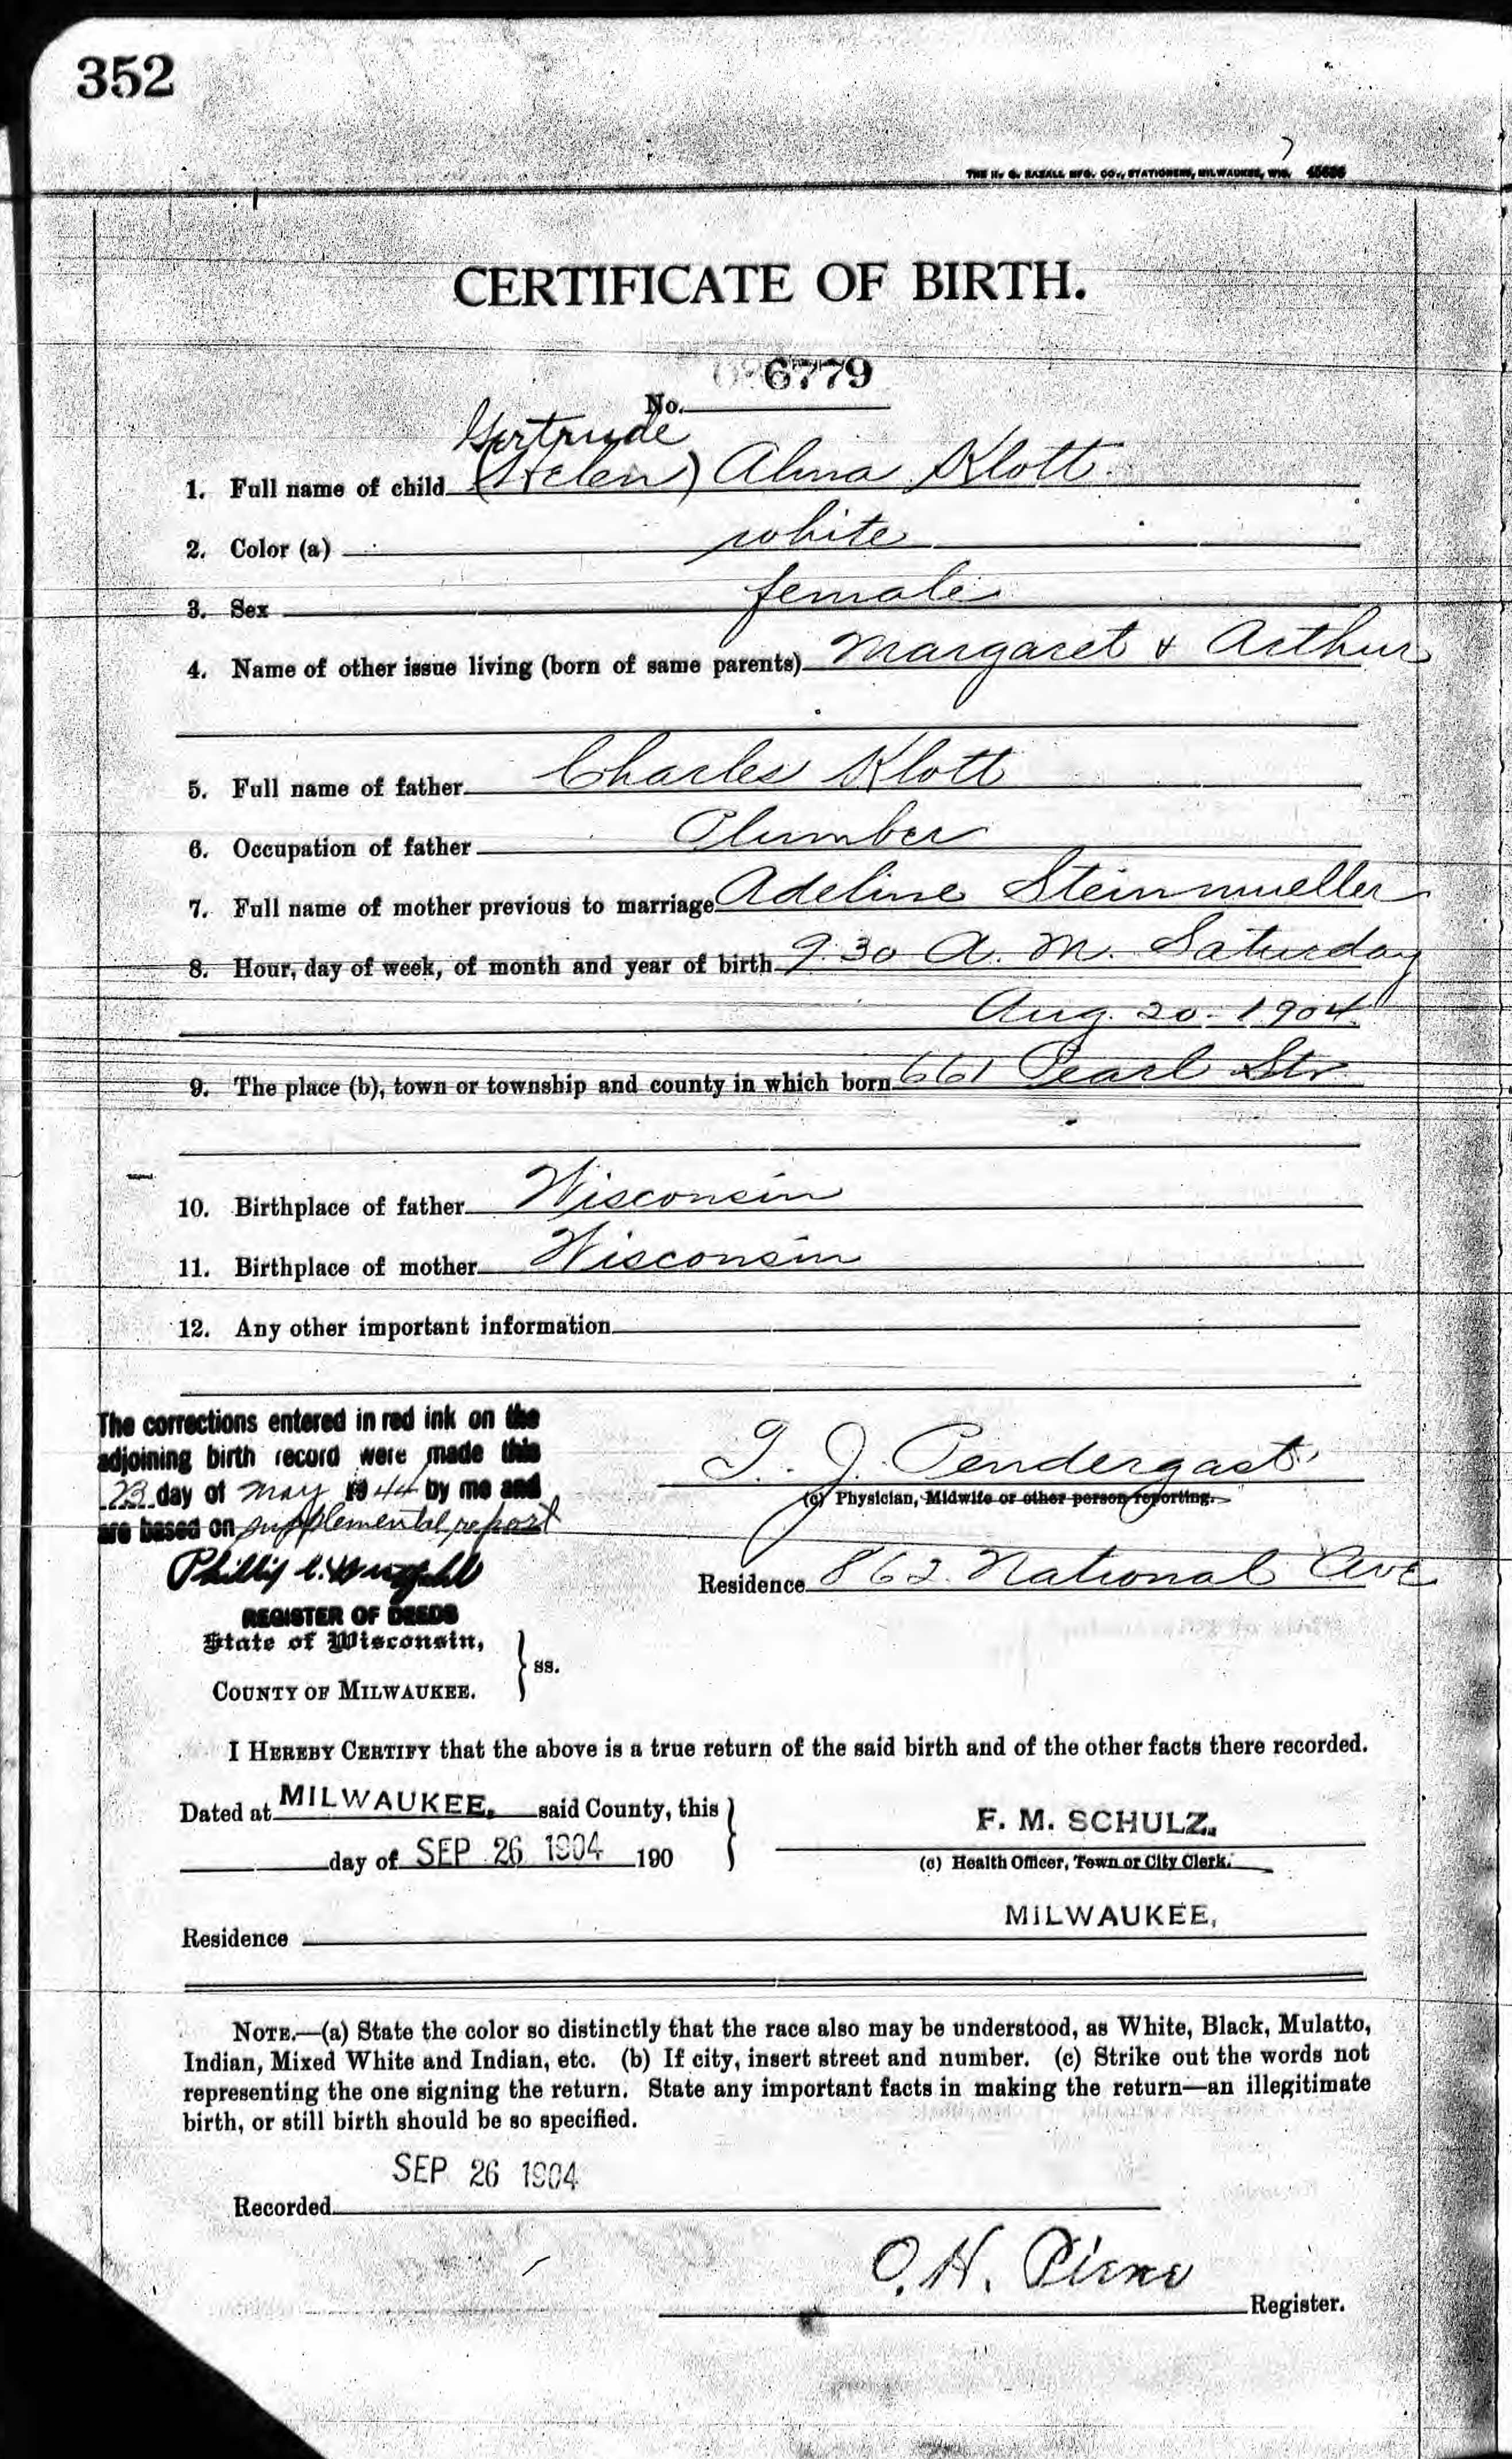 352
THE H. G. RAZALL MFG. CO., STATIONERS, MILWAUKEE, WIS.
CERTIFICATE OF BIRTH.
No. 6779
Gertrude
1. Full name of child (Helen) Alma Klott.
2. Color (a) white
3. Sex female
4. Name of other issue living (born of same parents) Margaret & Arthur
5. Full name of father Charles Klott
6. Occupation of father Plumber
7. Full name of mother previous to marriage Adeline Steinmueller
8. Hour, day of week, of month and year of birth 9.30 A. M. Saturday
Aug. 20 - 1904
9. The place (b), town or township and county in which born 661 Pearl Str
10. Birthplace of father Wisconsin
11. Birthplace of mother Wisconsin
12. Any other important information
The corrections entered in red ink on the
adjoining birth record were made this
23 day of May 1944 by me and
are based on supplemental report
Phillip C.
REGISTER OF DEEDS
T. J. Pendergast
(c) Physician, Midwife or other person reporting.
Residence 862 National Ave
State of Wisconsin,
COUNTY OF MILWAUKEE. } ss.
I HEREBY CERTIFY that the above is a true return of the said birth and of the other facts there recorded.
Dated at MILWAUKEE, said County, this
day of SEP 26 1904 190
F. M. SCHULZ,
(c) Health Officer, Town or City Clerk.
MILWAUKEE,
Residence
NOTE.—(a) State the color so distinctly that the race also may be understood, as White, Black, Mulatto,
Indian, Mixed White and Indian, etc. (b) If city, insert street and number. (c) Strike out the words not
representing the one signing the return. State any important facts in making the return—an illegitimate
birth, or still birth should be so specified.
SEP 26 1904
Recorded
O. H. Pierce
Register.